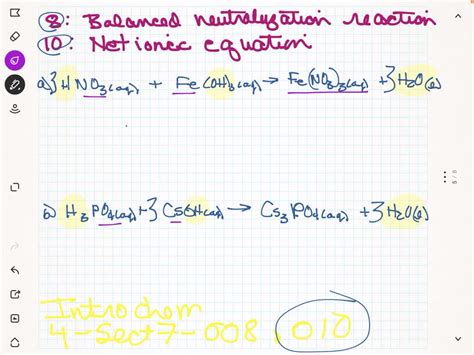 8: Balanced neutralization reaction
10: Net ionic equation
a) 3HNO₃(aq) + Fe(OH)₃(aq) → Fe(NO₃)₃(aq) + 3H₂O(l)
b) H₃PO₄(aq) + 3CsOH(aq) → Cs₃PO₄(aq) + 3H₂O(l)
Intro chem
4-Sect 7-008, 010